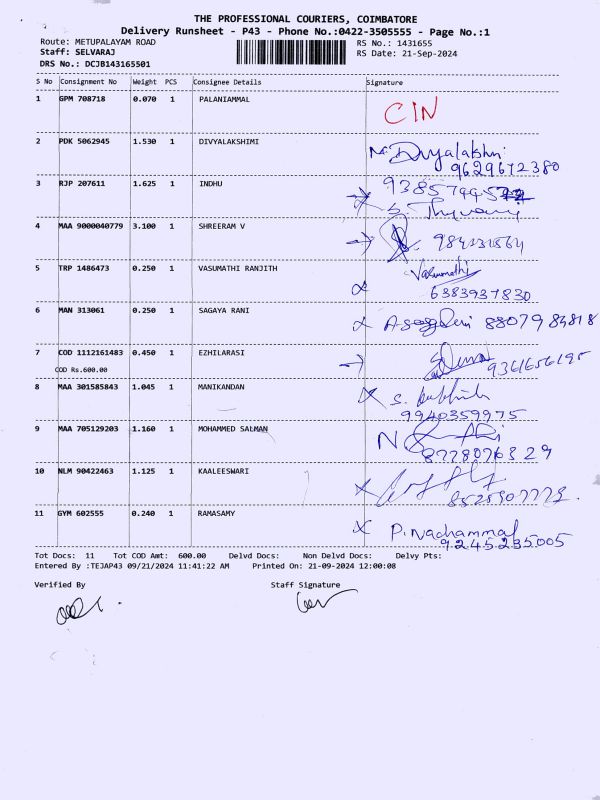 THE PROFESSIONAL COURIERS, COIMBATORE
Delivery Runsheet - P43 - Phone No.:0422-3505555 - Page No.:1
Route: METUPALAYAM ROAD RS No.: 1431655
Staff: SELVARAJ RS Date: 21-Sep-2024
DRS No.: DCJB143165501
S No Consignment No Weight PCS Consignee Details Signature
1 GPM 708718 0.070 1 PALANIAMMAL CIN
2 PDK 5062945 1.530 1 DIVYALAKSHIMI Divyalakshri
9629672380
3 RJP 207611 1.625 1 INDHU
4 MAA 9000040779 3.100 1 SHREERAM V
5 TRP 1486473 0.250 1 VASUMATHI RANJITH Vasumathi
6383937830
6 MAN 313061 0.250 1 SAGAYA RANI
7 COD 1112161483 0.450 1 EZHILARASI 9361656195
COD Rs.600.00
8 MAA 301585843 1.045 1 MANIKANDAN S.
9940359975
9 MAA 705129203 1.160 1 MOHAMMED SALMAN
10 NLM 90422463 1.125 1 KAALEESWARI
11 GYM 602555 0.240 1 RAMASAMY P. Nachammal
9245235005
Tot Docs: 11 Tot COD Amt: 600.00 Delvd Docs: Non Delvd Docs: Delvy Pts:
Entered By :TEJAP43 09/21/2024 11:41:22 AM Printed On: 21-09-2024 12:00:08
Verified By Staff Signature